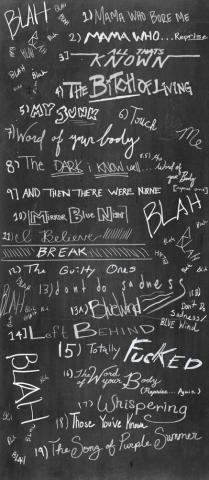 BLAH
1) MAMA WHO BORE ME
2) MAMA WHO... Reprise
BLAH
3) ALL THAT'S KNOWN
BLAH
4) THE BITCH OF LIVING
5) MY JUNK
6) Touch Me
7) Word of your body
8) The DARK i KNOW well...
8.5) The Word of your Body
9) AND THEN THERE WERE NONE
BLAH
10) MIRROR BLUE NIGHT
11) I Believe
BREAK
12) The Guilty Ones
13) don't do sadness
13A) BlueWind
13B) Don't Do Sadness/
BLUE Wind
14) Left BEHIND
15) Totally FUCKED
BLAH
16) The Word of your Body
(Reprise... Again)
17) Whispering
18) Those You've Known
19) The Song of Purple Summer